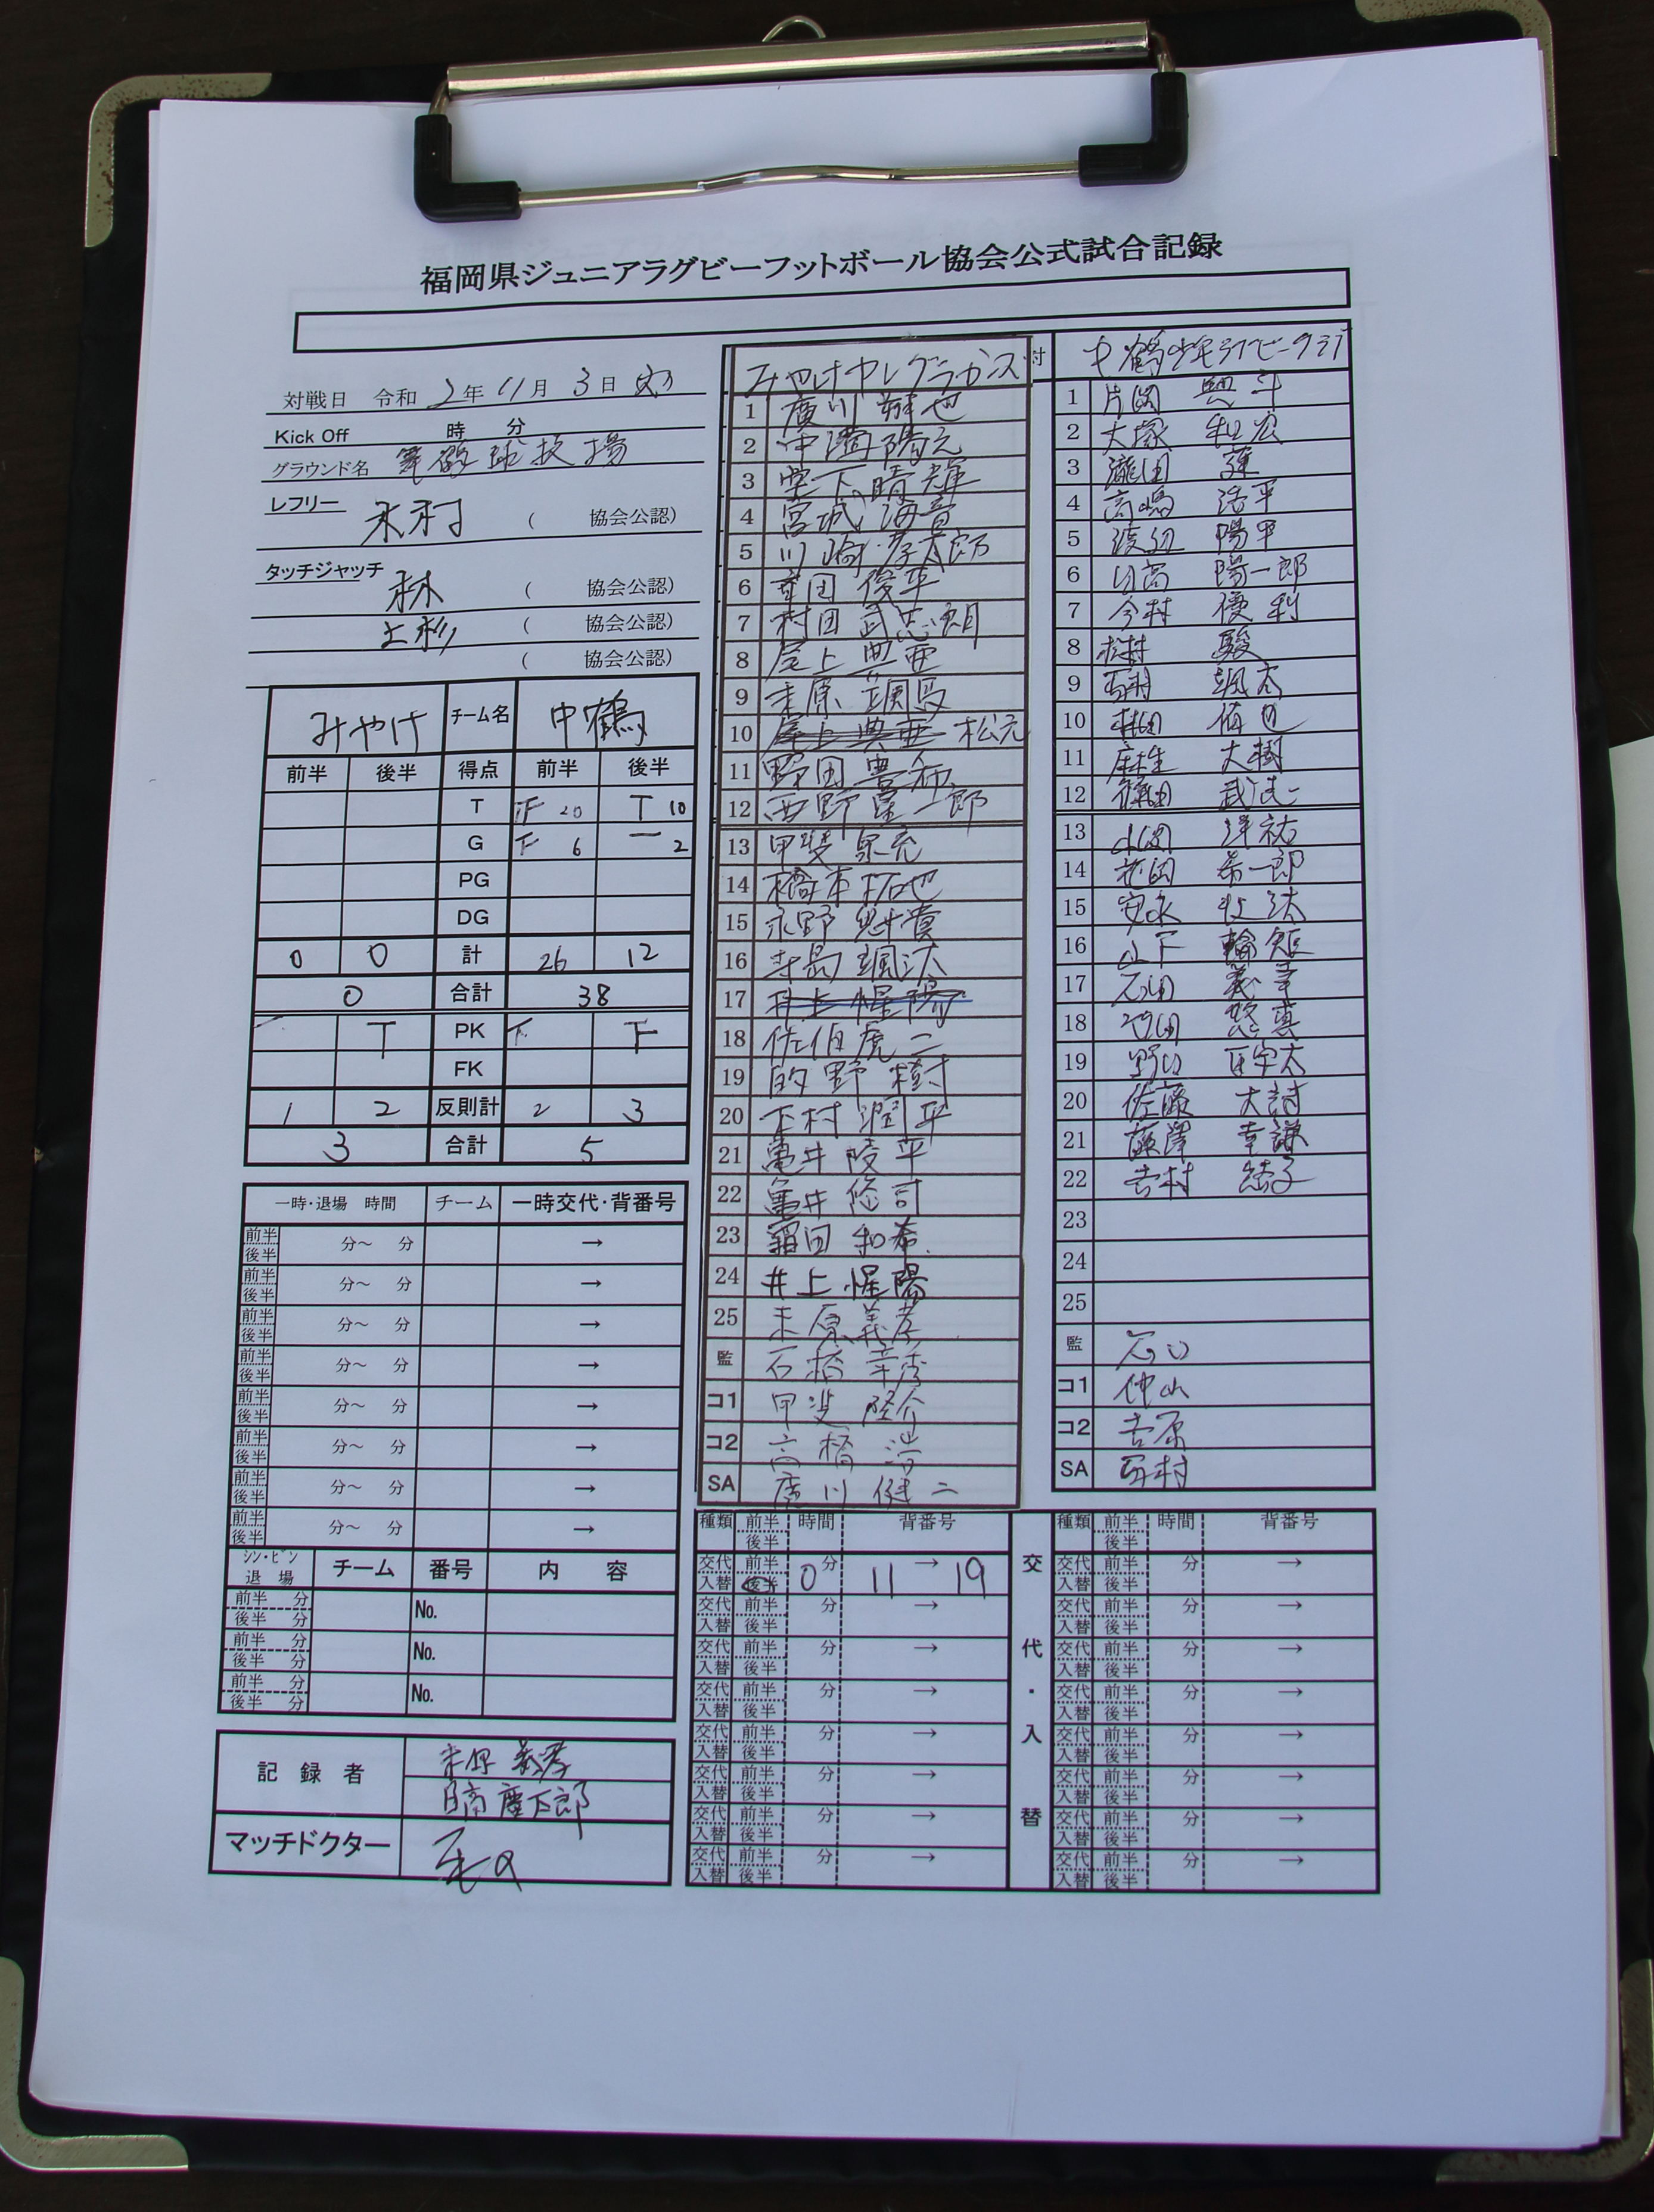 福岡県ジュニアラグビーフットボール協会公式試合記録
対戦日 令和 2年 11月 3日
Kick Off 時 分
グラウンド名 球技場
レフリー 木村 ( 協会公認)
タッチジャッチ 林 ( 協会公認)
上杉 ( 協会公認)
( 協会公認)
みやけ チーム名 中鶴
前半 後半 得点 前半 後半
T 20 T 10
G 6 2
PG
DG
0 0 計 26 12
0 合計 38
T PK
FK
1 2 反則計 2 3
3 合計 5
一時・退場 時間 チーム 一時交代・背番号
前半 後半 分～ 分 →
前半 後半 分～ 分 →
前半 後半 分～ 分 →
前半 後半 分～ 分 →
前半 後半 分～ 分 →
前半 後半 分～ 分 →
前半 後半 分～ 分 →
前半 後半 分～ 分 →
シン・ビン 退場 チーム 番号 内 容
前半 分 後半 分 No.
前半 分 後半 分 No.
前半 分 後半 分 No.
記録者
マッチドクター
みやけ中 対
1 廣川 也
2 仲 陽元
3 下 晴輝
4 宮城 海音
5 川崎 孝太郎
6 俊平
7 村田 武志朗
8 尾上 典亜
9 末原 颯馬
10 尾上 典亜 松元
11 野田 豊和
12 西野 一郎
13 甲斐
14 橋本 拓也
15 永野
16 寺島 颯汰
17 井上 惺陽
18 佐伯 虎二
19 的野 樹
20 下村 潤平
21 亀井 陵平
22 亀井 悠司
23 田 和希
24 井上 惺陽
25 末原 義孝
監 石橋 幸秀
コ1 甲斐 隆介
コ2 高橋 浩
SA 廣川 健二
中鶴少年ラグビークラブ
1 片岡 斗
2 大塚 和宏
3 瀧田 蓮
4 高嶋 浩平
5 渡辺 陽甲
6 日高 陽一郎
7 今村 優利
8 松村 駿
9 颯太
10 村田 侑也
11 麻生 大樹
12 篠田 武
13 洋祐
14 花岡 希一郎
15 安永 汰
16 山下 輪矩
17 石田 義
18 竹田 悠真
19 野口 太
20 佐藤 大詩
21 藤澤 幸謙
22 吉村 結子
23
24
25
監 石
コ1 仲山
コ2 吉原
SA 村
種類 前半 後半 時間 背番号
交代 入替 前半 後半 0分 11 → 19
交代 入替 前半 後半 分 →
交代 入替 前半 後半 分 →
交代 入替 前半 後半 分 →
交代 入替 前半 後半 分 →
交代 入替 前半 後半 分 →
交代 入替 前半 後半 分 →
交代 入替 前半 後半 分 →
交代・入替
種類 前半 後半 時間 背番号
交代 入替 前半 後半 分 →
交代 入替 前半 後半 分 →
交代 入替 前半 後半 分 →
交代 入替 前半 後半 分 →
交代 入替 前半 後半 分 →
交代 入替 前半 後半 分 →
交代 入替 前半 後半 分 →
交代 入替 前半 後半 分 →